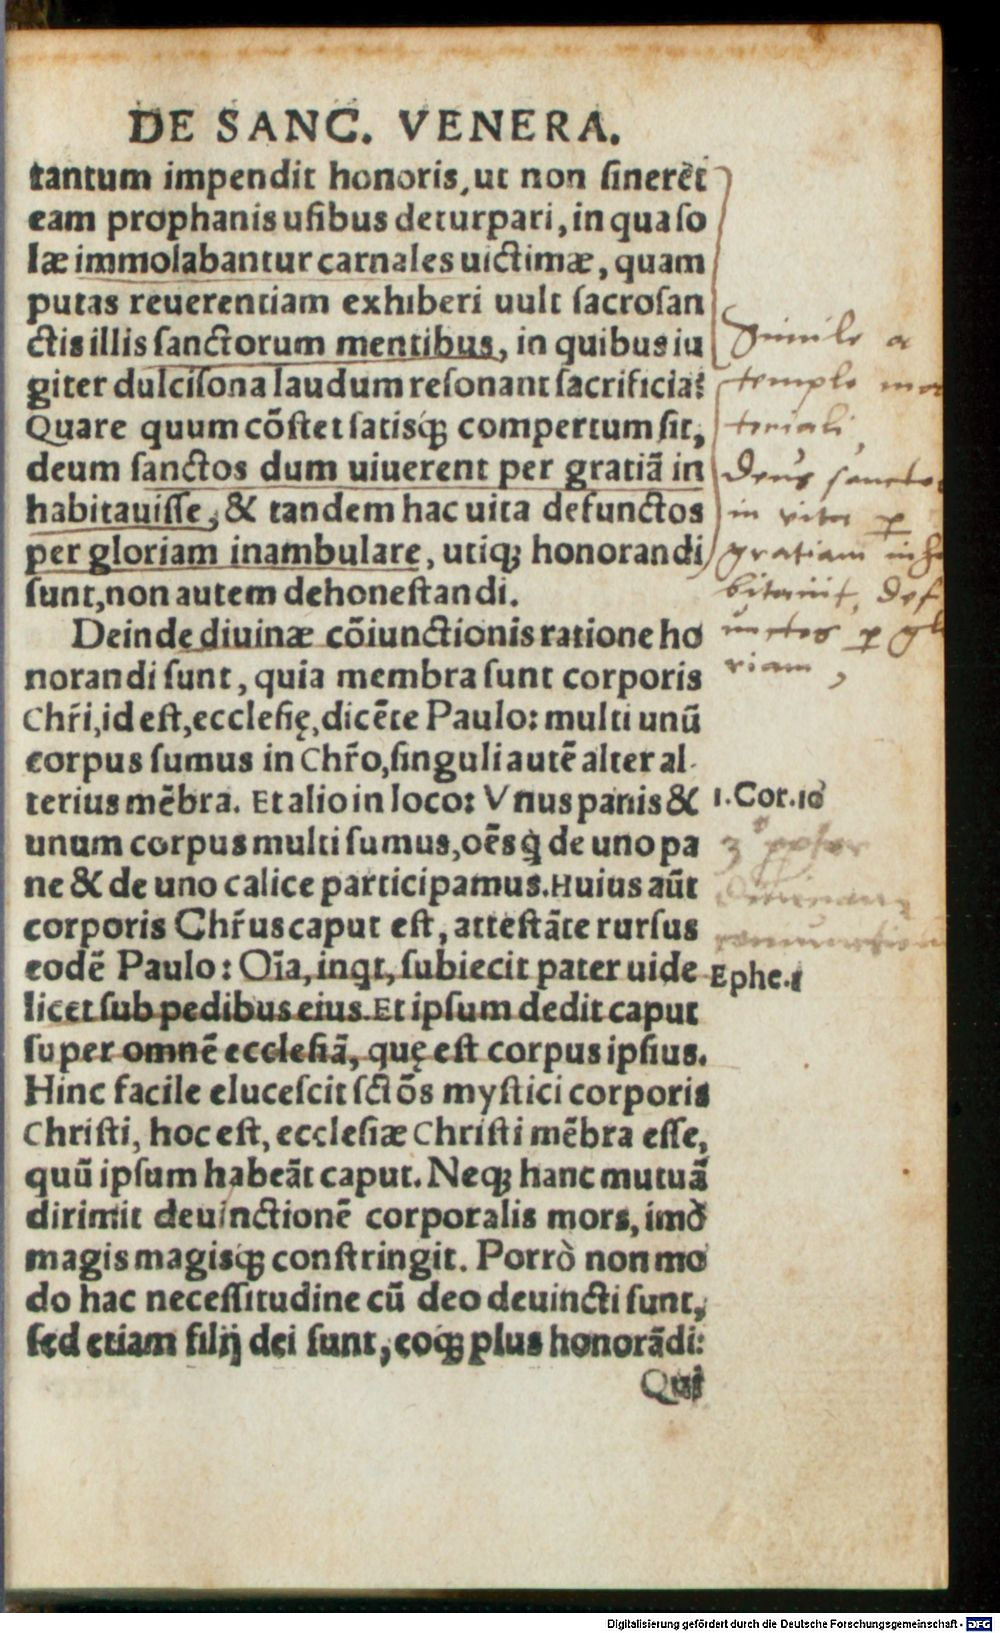 DE SANC. VENERA.
tantum impendit honoris, ut non sinerēt
eam prophanis usibus deturpari, in qua so
læ immolabantur carnales uictimæ, quam
putas reuerentiam exhiberi uult sacrosan
ctis illis sanctorum mentibus, in quibus iu
giter dulcisona laudum resonant sacrificia?
Quare quum cōstet satisq̃; compertum sit,
deum sanctos dum uiuerent per gratiā in
habitauisse, & tandem hac uita defunctos
per gloriam inambulare, utiq; honorandi
sunt, non autem dehonestandi.
Deinde diuinæ cōiunctionis ratione ho
norandi sunt, quia membra sunt corporis
Chr̃i, id est, ecclesię, dicēte Paulo: multi unū
corpus sumus in Chr̃o, singuli autē alter al
terius mēbra. Et alio in loco: Vnus panis &
unum corpus multi sumus, oēs q̇ de uno pa
ne & de uno calice participamus. Huius aūt
corporis Chr̃us caput est, attestāte rursus
eodē Paulo: Oīa, inqt, subiecit pater uide
licet sub pedibus eius. Et ipsum dedit caput
super omnē ecclesiā, quę est corpus ipsius.
Hinc facile elucescit sctōs mystici corporis
Christi, hoc est, ecclesiæ Christi mēbra esse,
quū ipsum habeāt caput. Neq; hanc mutuā
dirimit deuinctionē corporalis mors, imò
magis magisq̃; constringit. Porrò non mo
do hac necessitudine cū deo deuincti sunt,
sed etiam filij dei sunt, eoq̃; plus honorādi:
Qui
Simile a
templo ma
teriali,
Deus sancto
in vita p
gratiam inha
bitauit, def
unctos p glo
riam,
1. Cor. 10
Ephe. 1
Digitalisierung gefördert durch die Deutsche Forschungsgemeinschaft - DFG